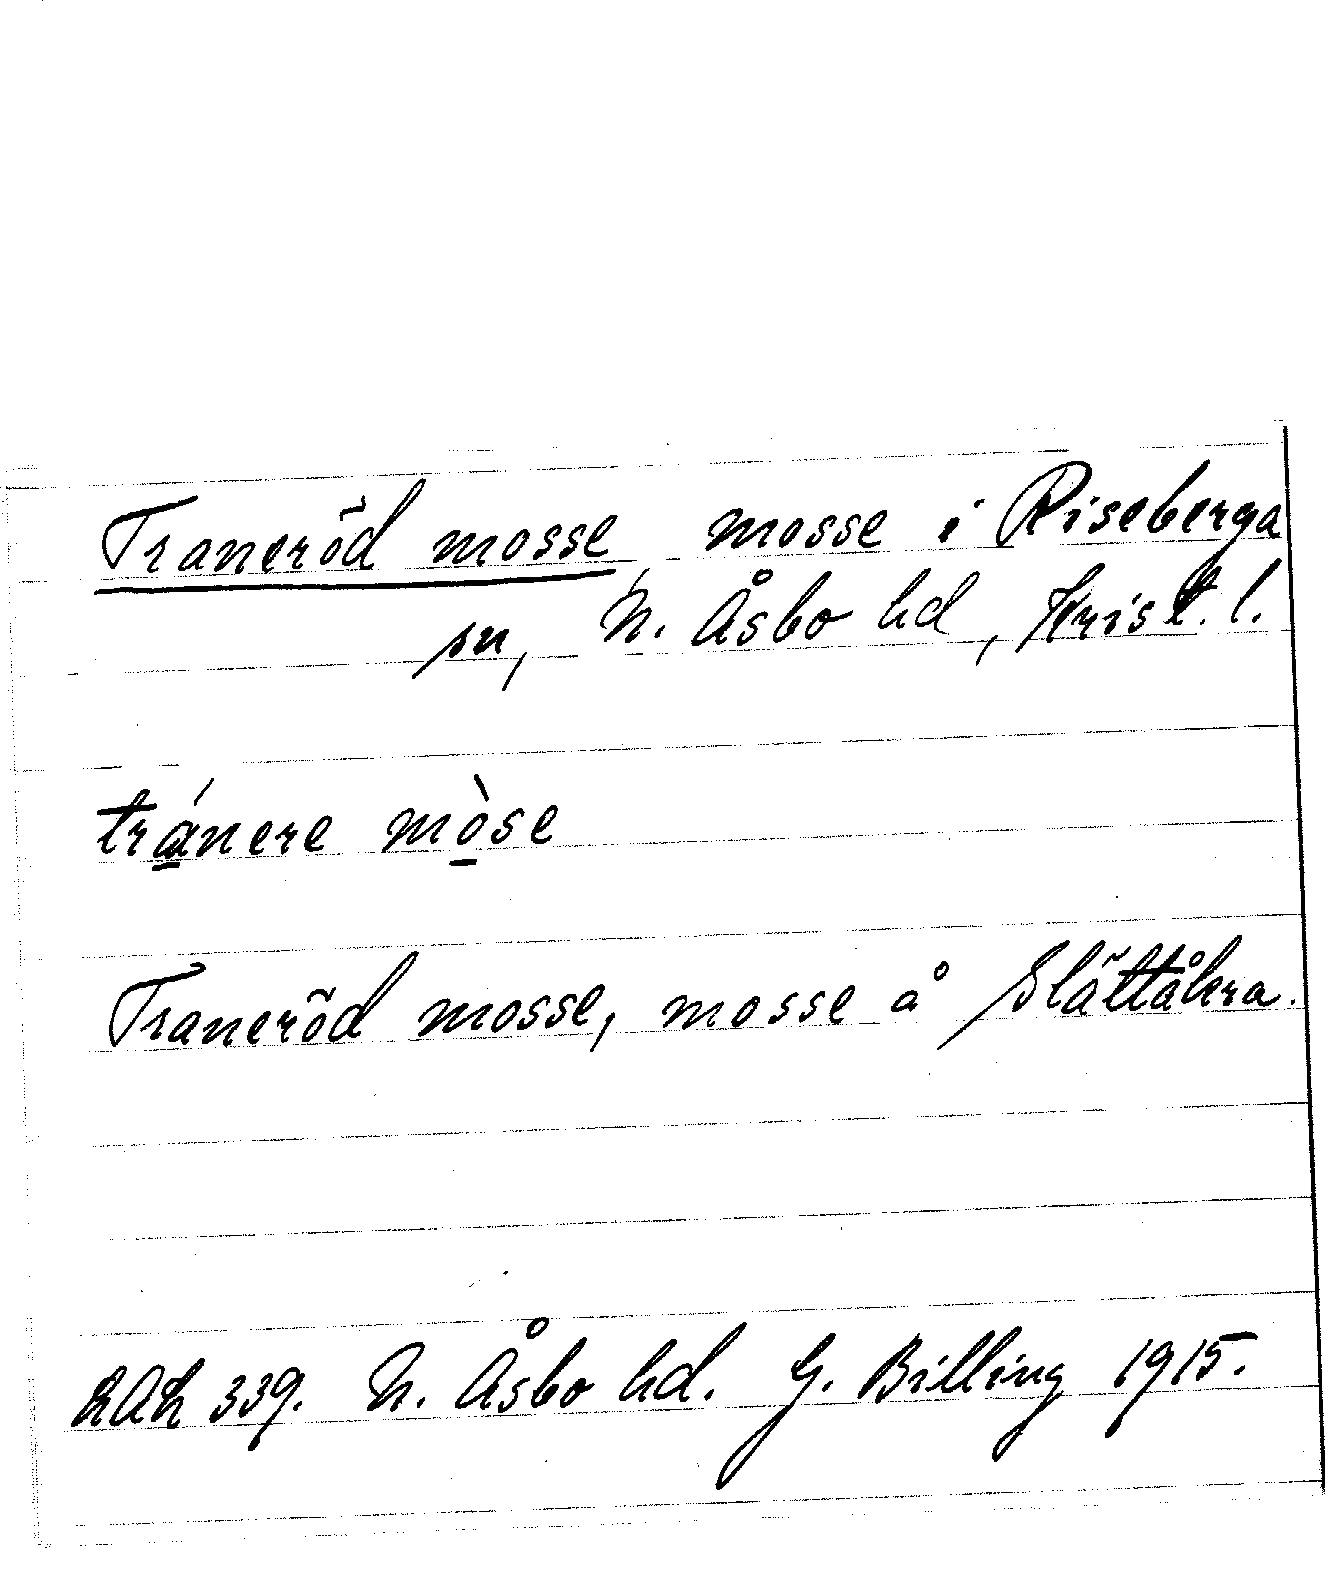 Traneröd mosse, mosse i Riseberga
sn, N. Åsbo hd, Krist. l.
tránere mòse
Traneröd mosse, mosse å Slättåkra.
LAL 339. N. Åsbo hd. G. Billing 1915.